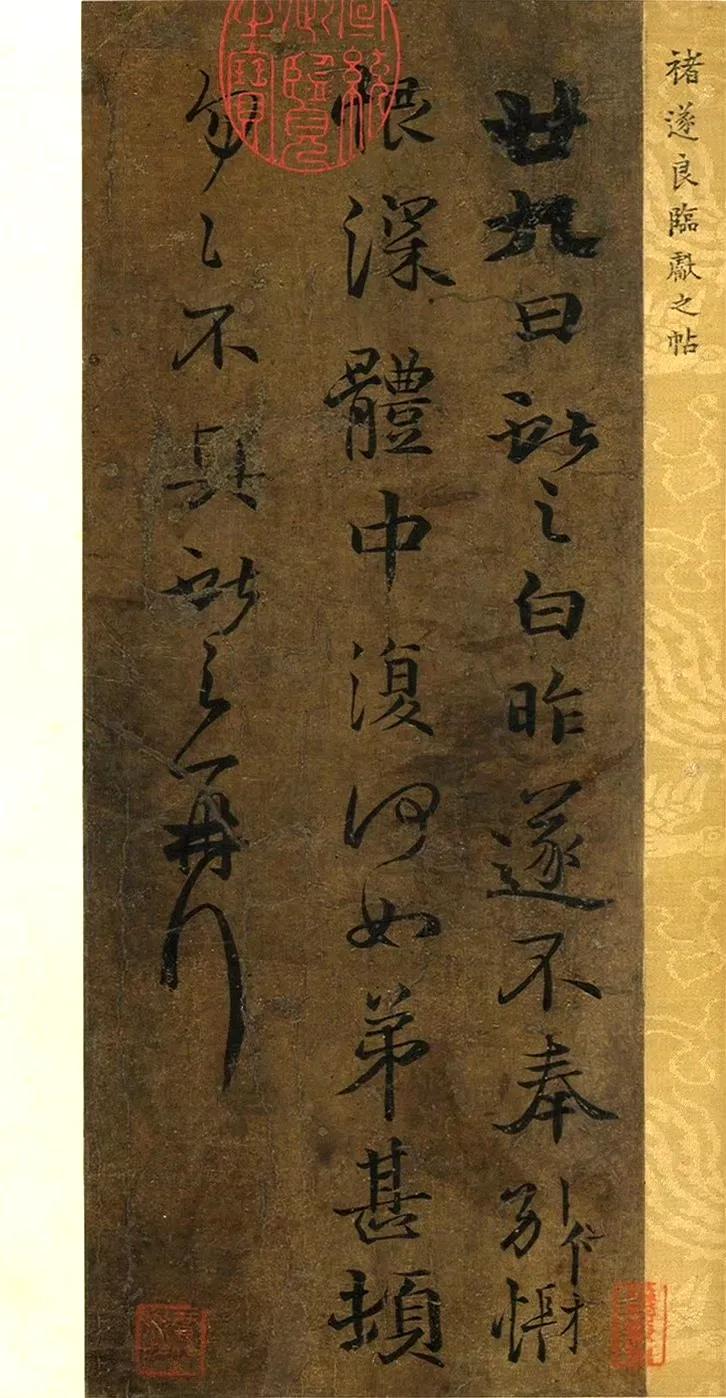 褚遂良臨獻之帖
廿九日獻之白昨遂不奉別悵
恨深體中復何如弟甚頓
匆〻不具獻之再拜
宣統御覽之寶